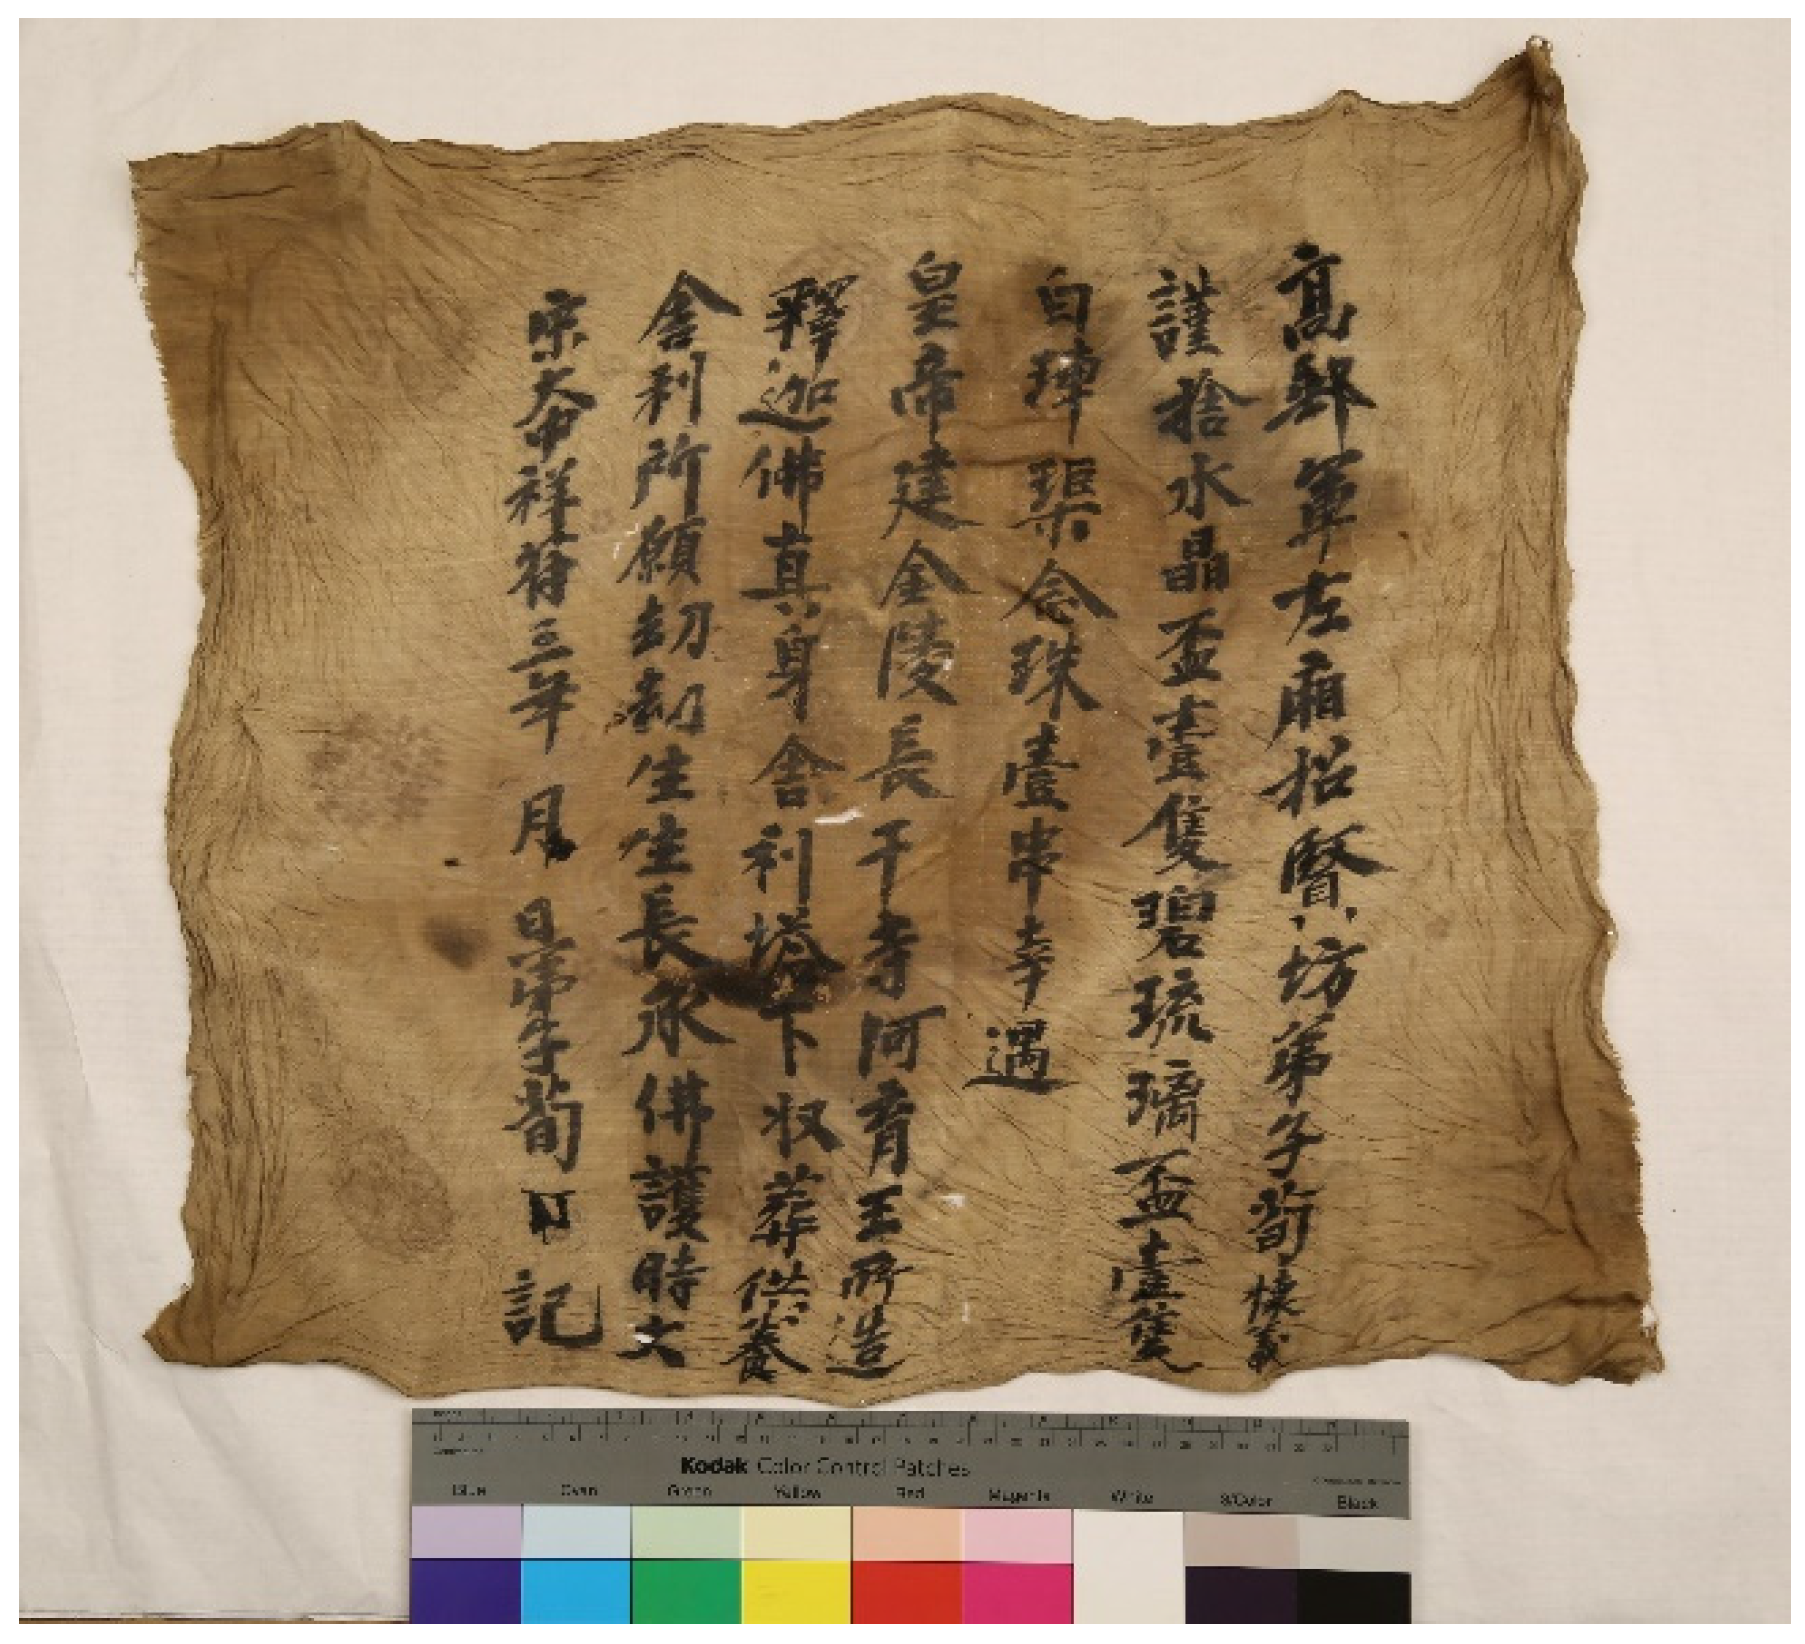 高郵軍左廂招賢坊弟子荀懷義
謹捨水晶盃壹隻碧琉璃盃壹隻
白硨磲念珠壹串幸遇
皇帝建金陵長干寺阿育王所造
釋迦佛真身舍利塔下収葬供養
舍利所願劫劫生生長承佛護時大
宋大中祥符三年 月 日弟子荀 記
Kodak Color Control Patches
Blue Cyan Green Yellow Red Magenta White 3/Color Black